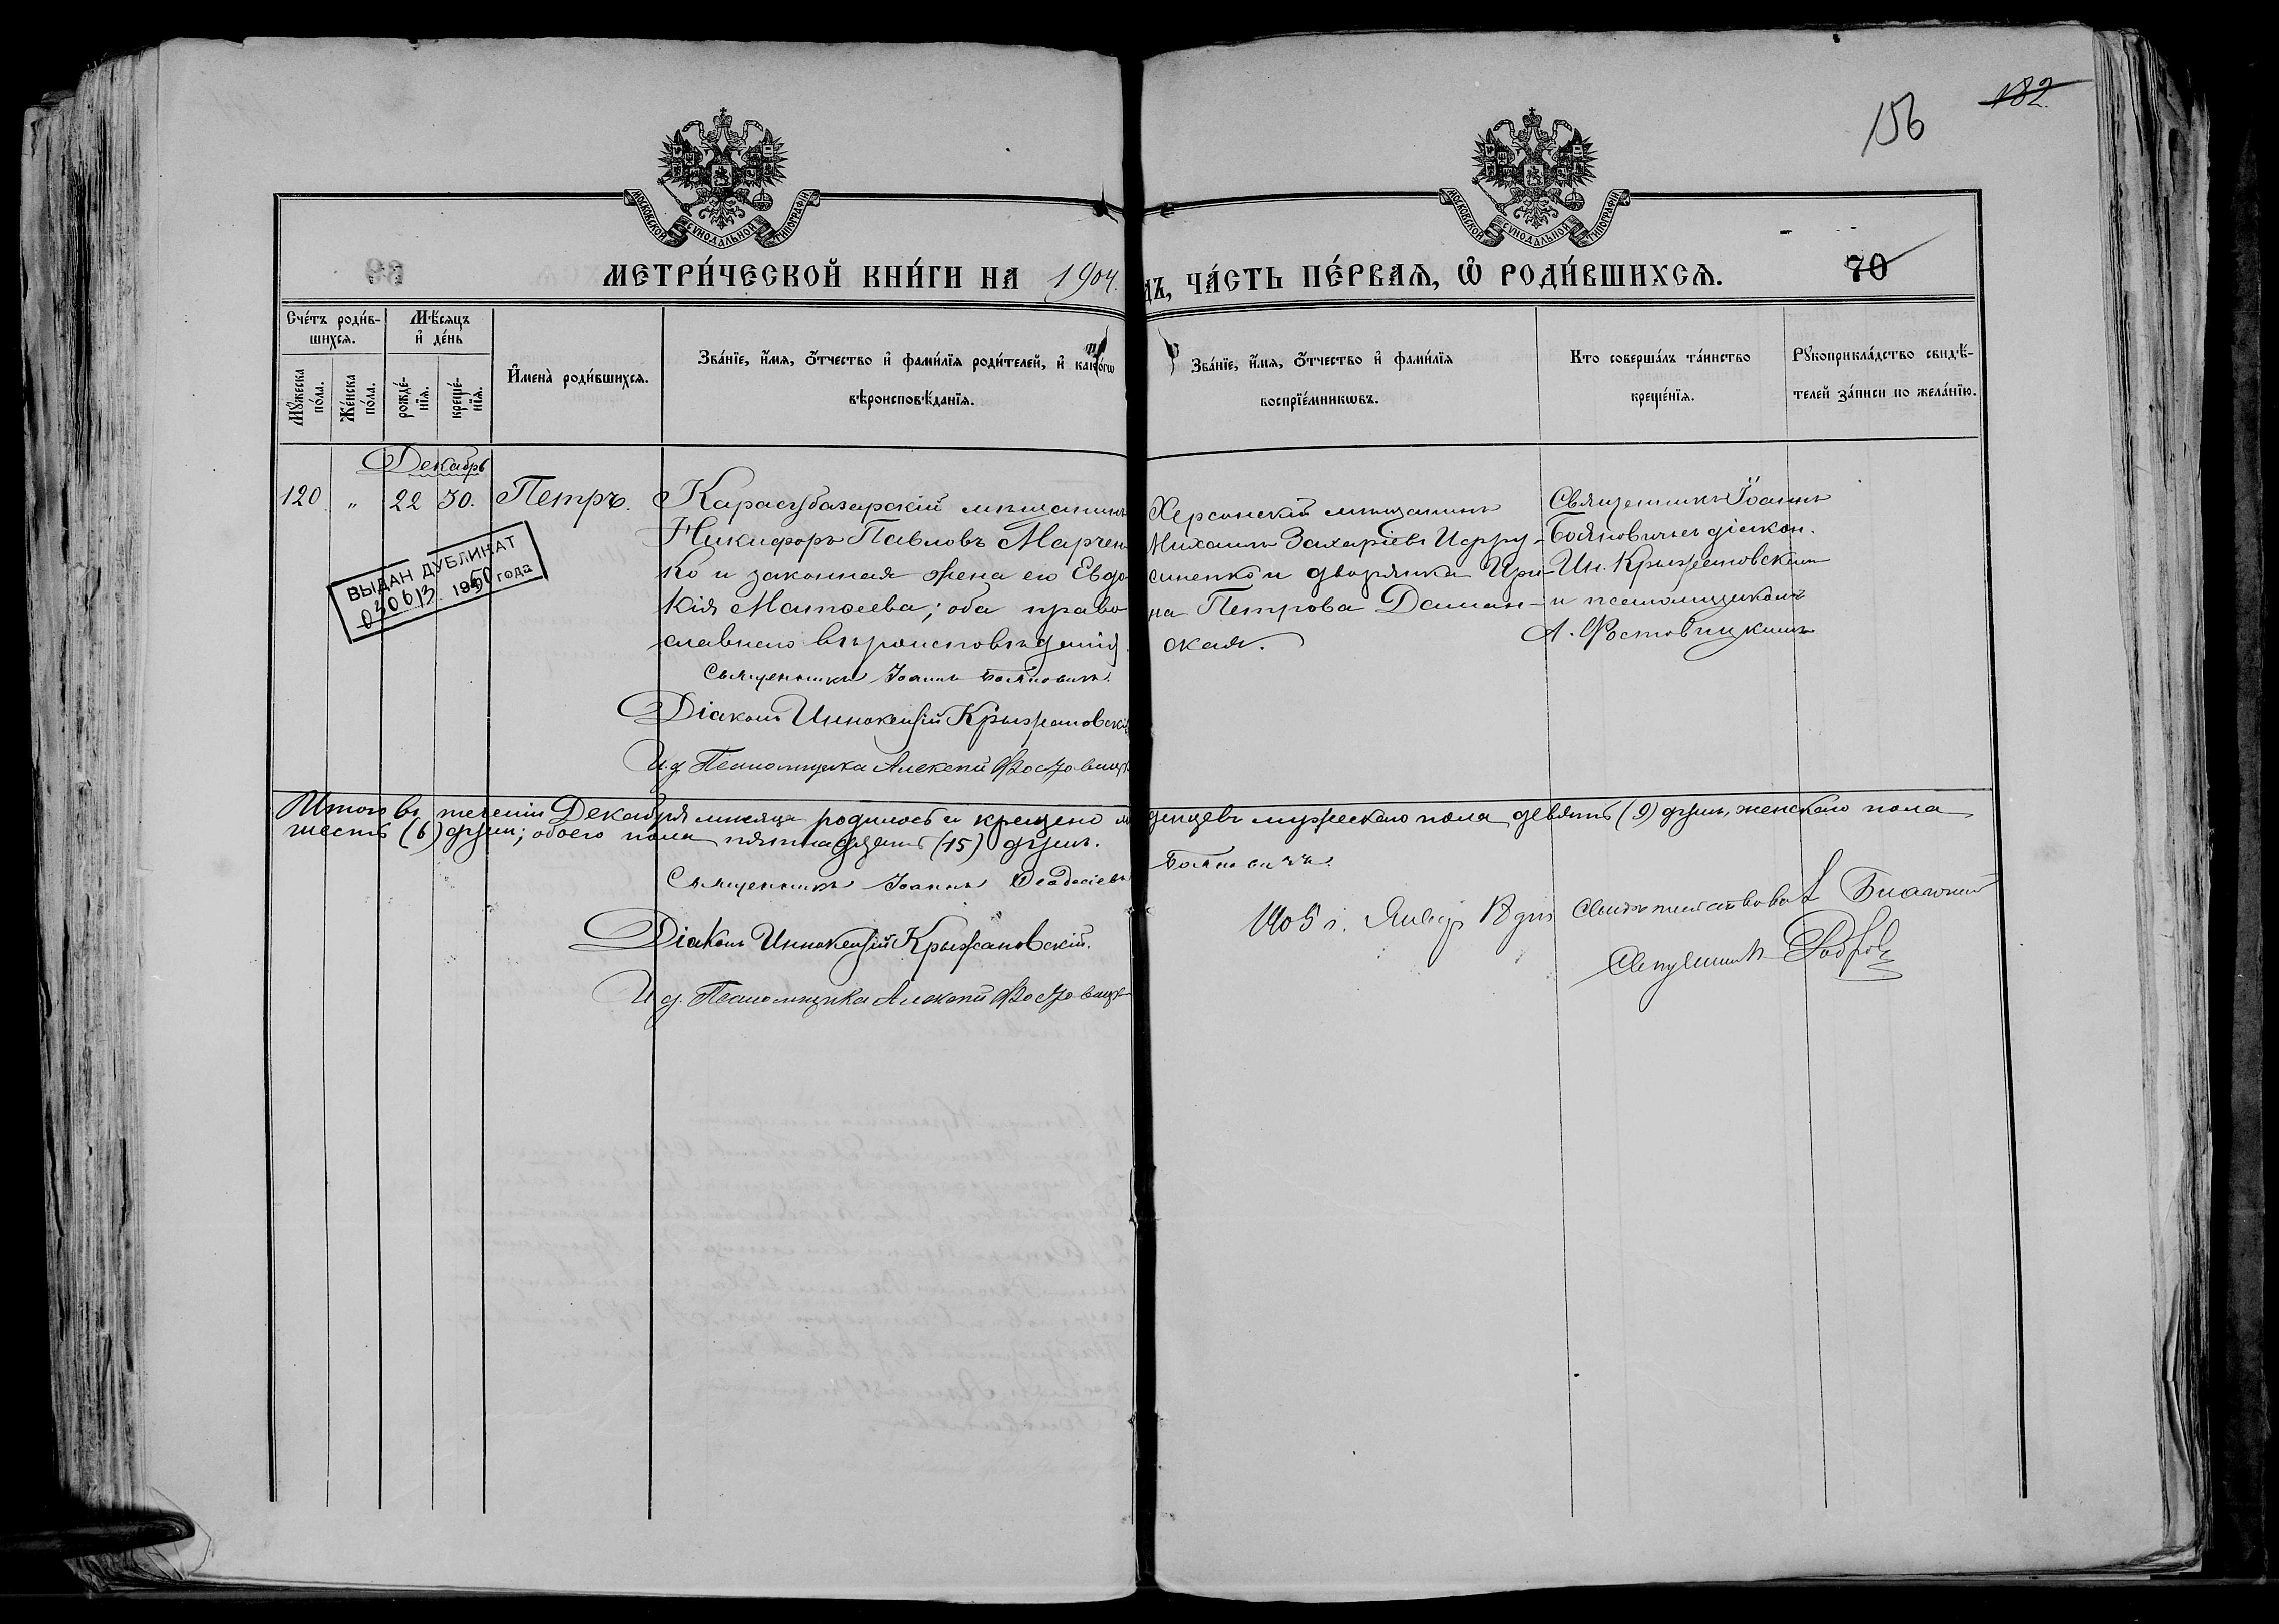 182
156
МОСКОВСКОЙ СУНОДАЛЬНОЙ ТИПОГРАФІИ
МОСКОВСКОЙ СУНОДАЛЬНОЙ ТИПОГРАФІИ
МЕТРИ́ЧЕСКОЙ КНИ́ГИ НА 1904.
ДЪ, ЧА́СТЬ ПЕ́РВАЯ, Ѡ҆ РОДИ́ВШИХСЯ.
70
Сче́тъ роди́в-
шихся.
Мꙋ́жеска по́ла.
Же́нска по́ла.
Мѣ́сяцъ и҆ де́нь
рожде́-нїя.
креще́-нїя.
И҆мена̀ роди́вшихся.
Зва́нїе, и҆́мя, ѻ҆́тчество и҆ фами́лїя роди́телей, и҆ како́гѡ
вѣроисповѣ́данїя.
Зва́нїе, и҆́мя, ѻ҆́тчество и҆ фами́лїя
воспрїе́мникѡвъ.
Кто соверша́лъ та́инство
креще́нїя.
Рꙋкоприкла́дство свидѣ́-
телей за́писи по жела́нїю.
Декабрь
120. " 22 30. Петръ.
Карасубазарскій мѣщанинъ
Никифоръ Павловъ Марчен
ко и законная жена его Евдо
кія Матѳеева; оба право
славнаго вѣроисповѣданія.
Священникъ Іоаннъ Бояновичъ.
Діаконъ Иннокентій Крыжановскій
И. д. Псаломщика Алексѣй
Херсонскій мѣщанинъ
Михаилъ Захаріевъ
и дворянка Ири-
на Петрова Даман-
ская.
Священникъ Іоаннъ
Бояновичъ съ діакон.
Ин. Крыжановскимъ
и псаломщикомъ
А.
ВЫДАН ДУБЛИКАТ
030613 1950 года
Итого въ теченіи Декабря мѣсяца родилось и крещено мла
денцевъ мужескаго пола девять (9) душъ, женскаго пола
шесть (6) душъ; обоего пола пятнадцать (15) душъ.
Священникъ Іоаннъ Ѳеодосіевъ
Бояновичъ.
Діаконъ Иннокентій Крыжановскій.
И. д. Псаломщика Алексѣй
1905 г. Январ дня свидетельствовал
Священникъ